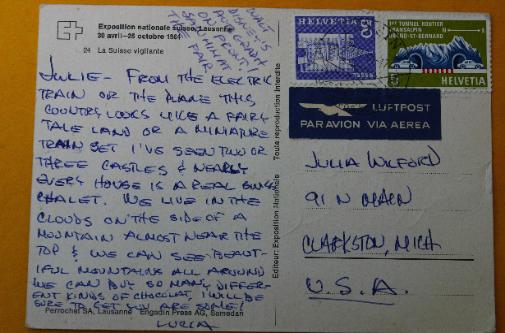 Exposition nationale suisse, Lausanne
30 avril-25 octobre 1964
24 La Suisse vigilante
WALT
DISNEY'S
ON
THE FAIR
JULIE - FROM THE ELECTRIC
TRAIN OR THE PLANE THIS
COUNTRY LOOKS LIKE A FAIRY
TALE LAND OR A MINIATURE
TRAIN SET I'VE SEEN TWO OR
THREE CASTLES & NEARLY
EVERY HOUSE IS A REAL SWISS
CHALET. WE LIVE IN THE
CLOUDS ON THE SIDE OF A
MOUNTAIN ALMOST NEAR THE
TOP & WE CAN SEE BEAUT-
IFUL MOUNTAINS ALL AROUND
WE CAN BUY SO MANY DIFFER-
ENT KINDS OF CHOCLAT, I WILL BE
SURE TO GET YOU ARE SOME!
Perrochet SA, Lausanne Engadin Press AG, Samedan
Editeur: Exposition Nationale Toute reproduction interdite
HELVETIA
1er TUNNEL ROUTIER
TRANSALPIN
GRAND-ST-BERNARD
5 HELVETIA
LUFTPOST
PAR AVION VIA AEREA
JULIA WILFORD
91 N MAIN
CLARKSTON, MICH
U.S.A.